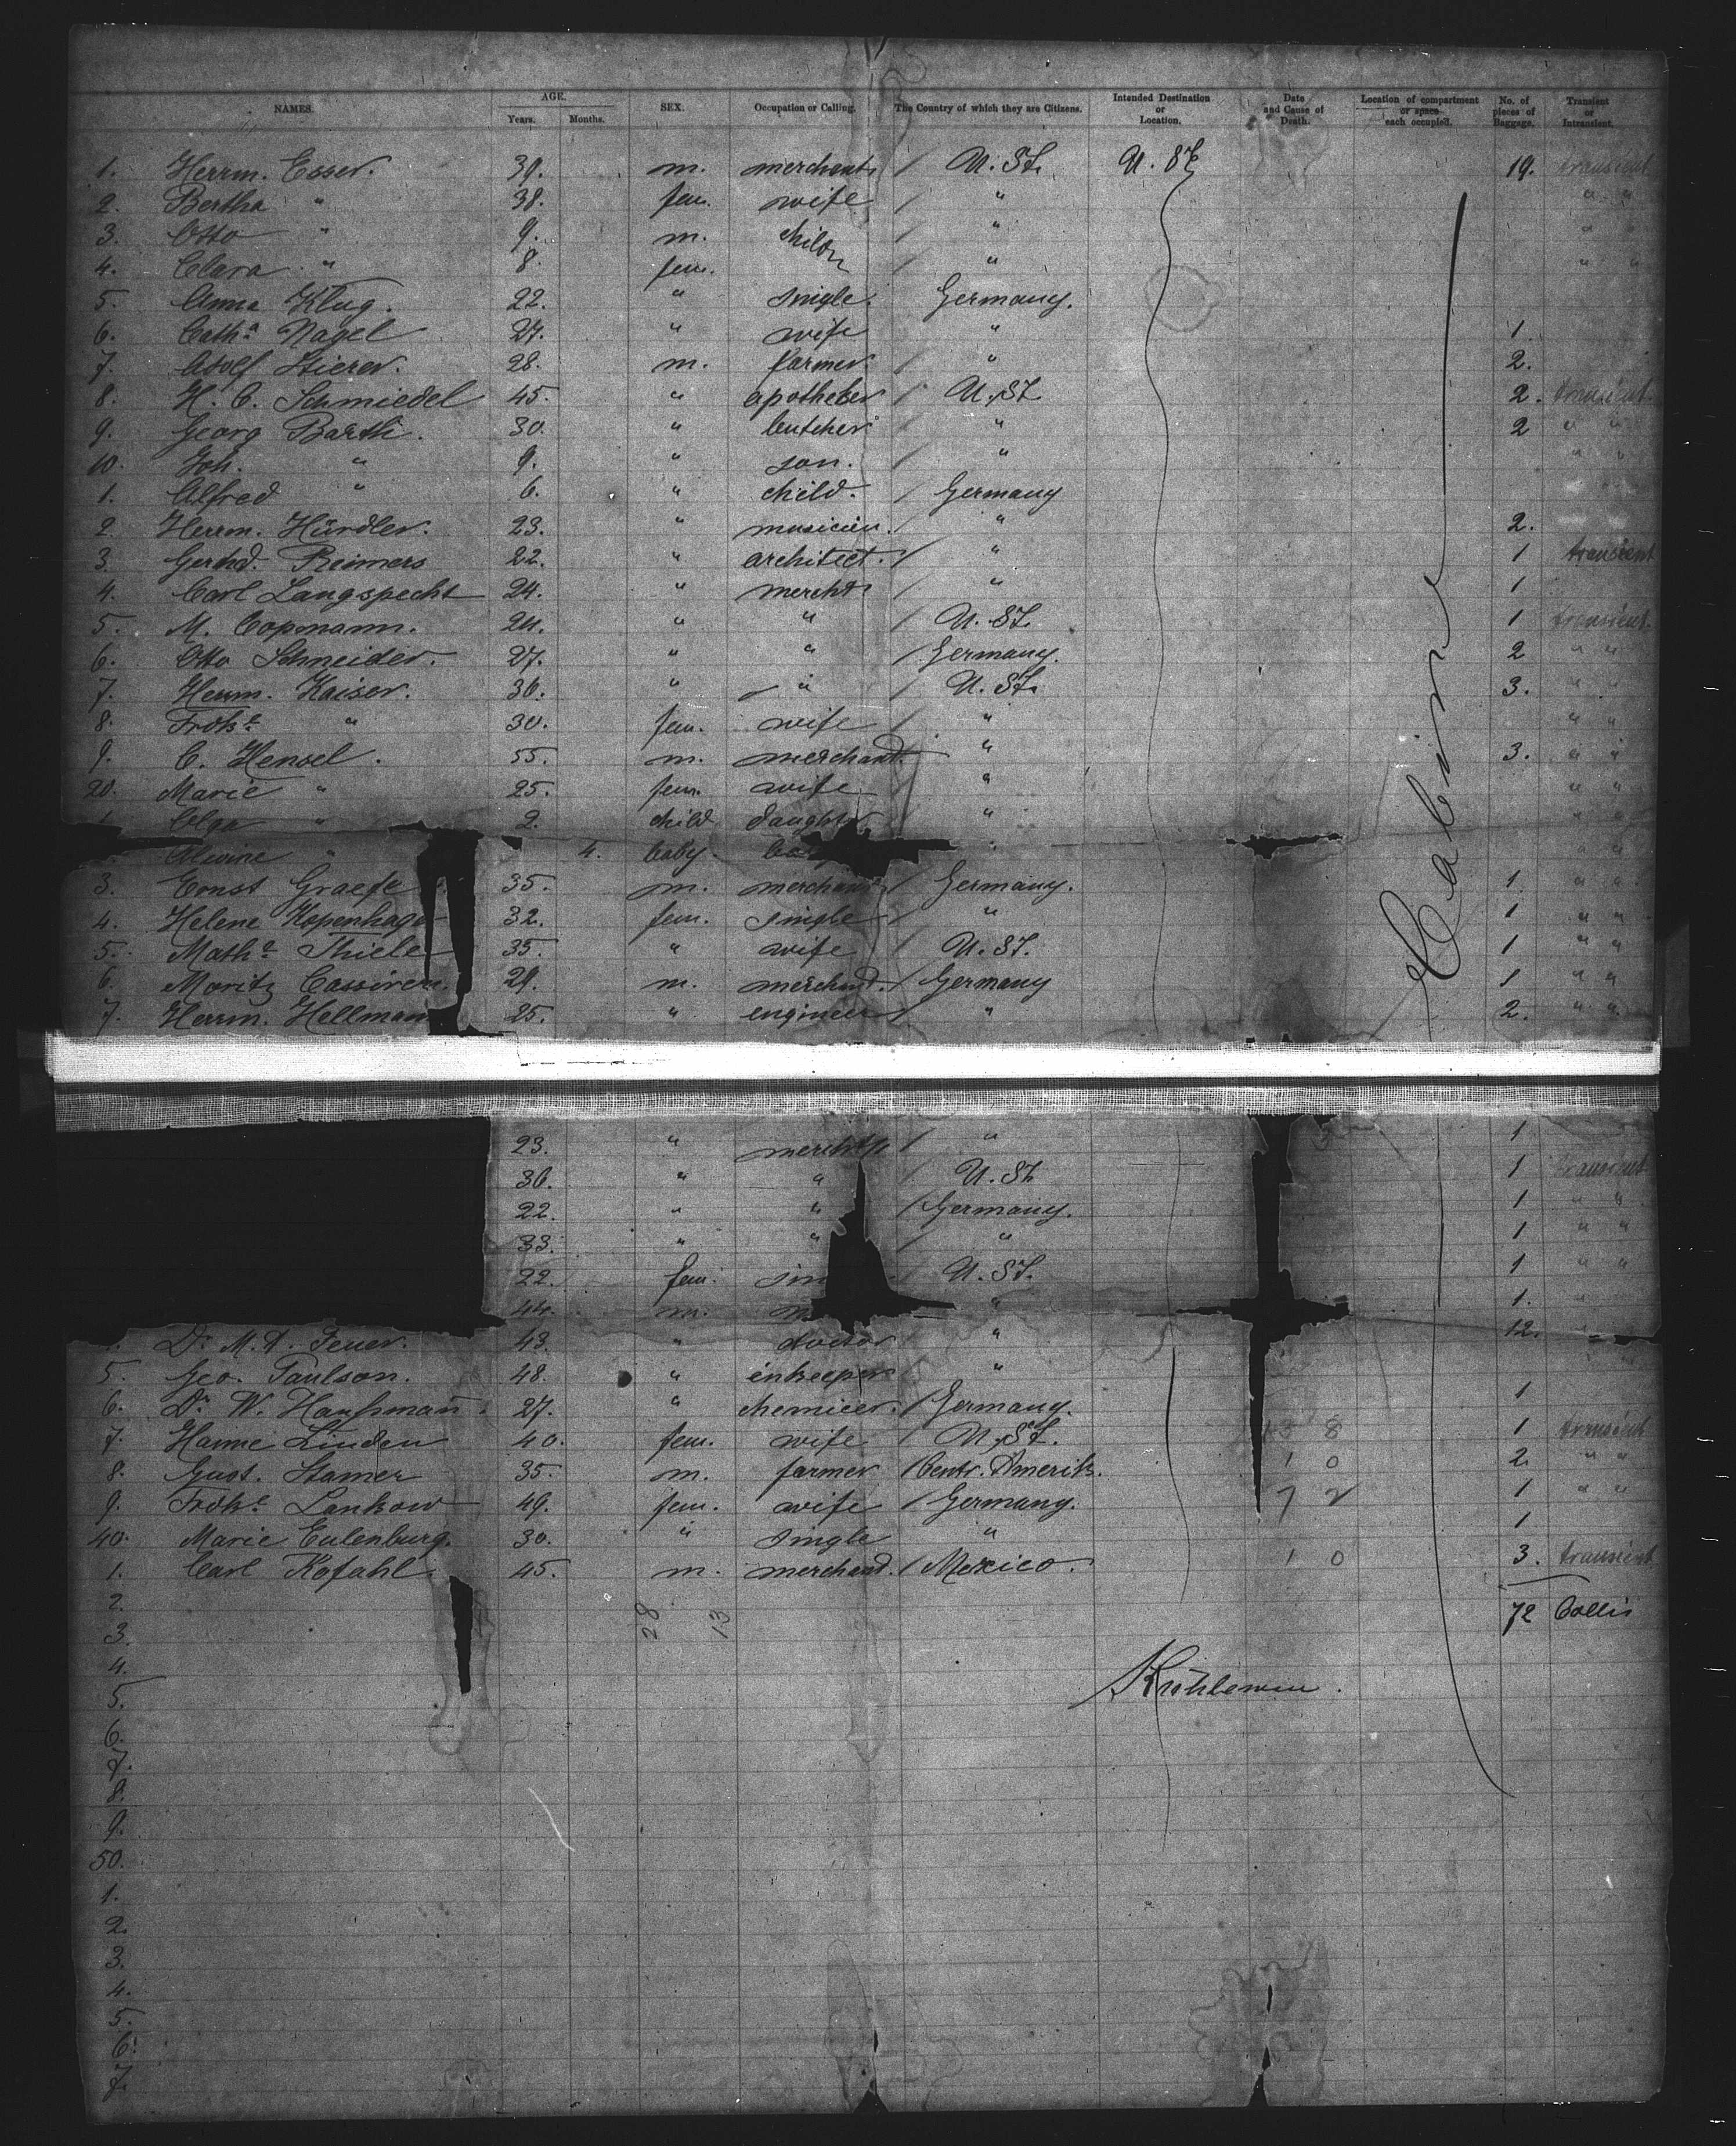 NAMES. AGE. Years. Months. SEX. Occupation or Calling. The Country of which they are Citizens. Intended Destination or Location. Date and Cause of Death. Location of compartment or space each occupied. No. of pieces of Baggage. Transient or Intransient.
1. Herrm. Esser. 39. m. merchant / U. St. U. St. 19. transient
2. Bertha " 38. fem. wife / " " "
3. Otto " 9. m. child / " " "
4. Clara " 8. fem. / " " "
5. Anna Klug. 22. " single. Germany.
6. Cath.a Nagel 27. " wife " 1.
7. Adolf Stierer. 28. m. farmer. / " 2.
8. H. C. Schmiedel 45. " apotheker / U. St. 2. transient.
9. Georg Barth. 30. " butcher / " 2 " "
10. Joh. " 9. " son. / " " "
1. Alfred " 6. " child. / Germany
2. Herrm. Hürdler. 23. " musician. / " 2.
3. Gerhd. Reimers 22. " architect. / " 1 transient
4. Carl Langspecht 24. " mercht / " 1
5. M. Copmann. 24. " " U. St. 1 transient.
6. Otto Schneider. 27. " " / Germany. 2 " "
7. Herrm. Kaiser. 36. " " / U. St. 3. " "
8. " 30. fem. wife / " " "
9. C. Hensel. 55. m. merchant. " 3. " "
20. Marie " 25. fem. wife " " "
1. Olga " 2. child daughter " " "
Alwine " 4. baby " " "
3. Ernst Graefe 35. m. merchant / Germany. 1. " "
4. Helene Kopenhage 32. fem. single / " 1 " "
5. Math.e Thiele 35. " wife / U. St. 1 " "
6. Moritz Cassirer. 29. m. merchant. / Germany 1 " "
7. Herrm. Hellmann 25. " engineer / " 2. " "
Cabin
23. " mercht / " 1
36. " " U. St. 1 transient
22. " " / Germany. 1 " "
33. " " / " 1 " "
22. fem. U. St. 1 " "
44. m. " 1. "
Dr. M. A. Feuer. 43. " doctor " 12. "
5. Geo. Paulson. 48. " inkeeper "
6. Dr. W. Haußmann. 27. " chemicer. / Germany. 1
7. Hanne Linden 40. fem. wife / U. St. 8 1 transient
8. Gust. Stamer 35. m. farmer / Centr. Amerik. 1 0 2. " "
9. Lankow 49. fem. wife / Germany. 7 2 1 " "
40. Marie Eulenburg. 30. " single " 1
1. Carl Kofahl. 45. m. merchand. / Mexico. 1 0 3. transient
2. 28 13 72 Collis
3.
4. 
5.
6.
7.
8.
9.
50.
1.
2.
3.
4.
5.
6.
7.